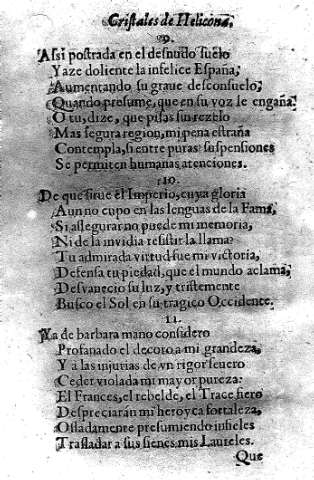 Cristales de Helicona.
9.
Assi postrada en el desnudo suelo
Yaze doliente la infelice España,
Aumentando su graue desconsuelo,
Quando presume, que en su voz le engaña:
O tu, dize, que pisas sin rezelo
Mas segura region, mi pena estraña
Contempla, si entre puras suspensiones
Se permiten humanas atenciones.
10.
De que sirue el Imperio, cuya gloria
Aun no cupo en las lenguas de la Fama,
Si assegurar no puede mi memoria,
Ni de la inuidia resistir la llama?
Tu admirada virtud fue mi victoria,
Defensa tu piedad, que el mundo aclama,
Desvanecio su luz, y tristemente
Busco el Sol en su tragico Occidente.
11.
Ya de barbara mano considero
Profanado el decoro a mi grandeza,
Y a las injurias de vn rigor seuero
Ceder violada mi mayor pureza:
El Frances, el rebelde, el Trace fiero
Despreciarán mi heroyca fortaleza,
Osadamente presumiendo infieles
Trasladar a sus sienes mis Laureles.
Que